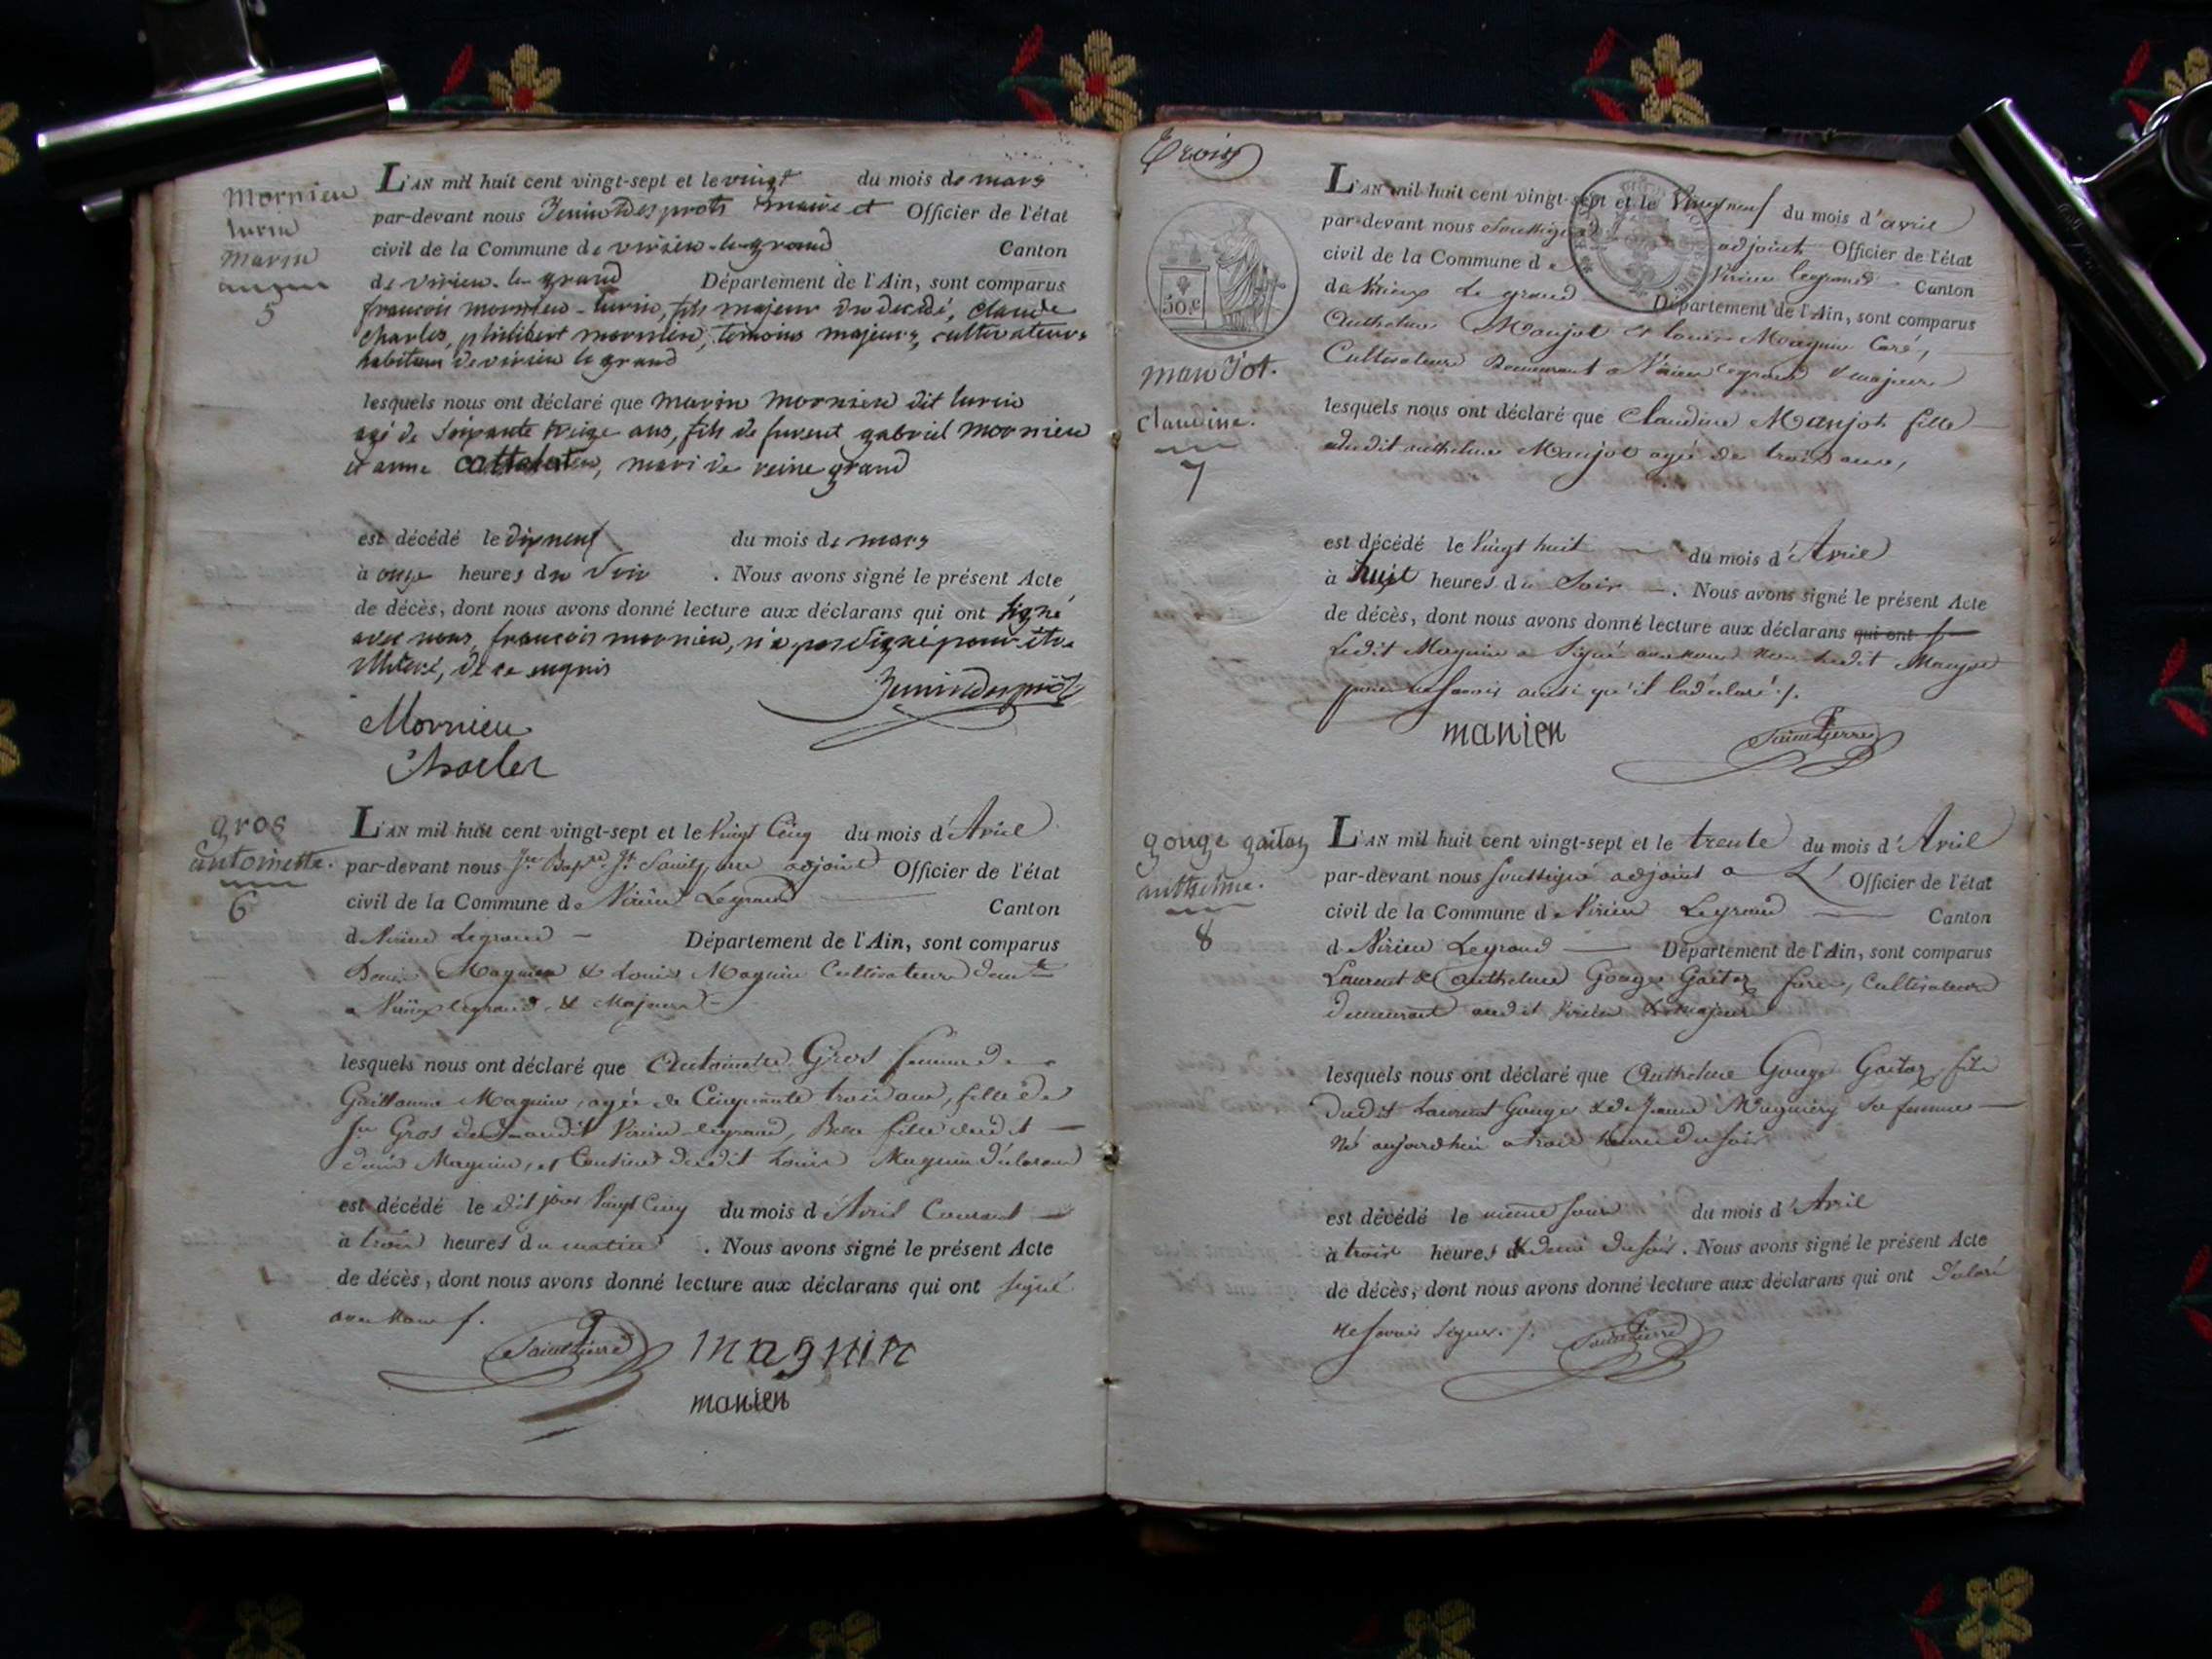 mornieu
lurin
marin
5
L'AN mil huit cent vingt-sept et le vingt du mois de mars
par-devant nous Jenin Desprots maire et Officier de l'état
civil de la Commune de virieu-le-grand Canton
de virieu-le-grand Département de l'Ain, sont comparus
francois mornieu-lurin, fils majeur du décédé, claude
charles, philibert mornieu, temoins majeurs, cultivateurs
habitans de virieu le grand
lesquels nous ont déclaré que marin mornieu dit lurin
agé de soixante treize ans, fils de furent gabriel mornieu
et anne, mari de reine grand
est décédé le dix neuf du mois de mars
à onze heures du soir. Nous avons signé le présent Acte
de décès, dont nous avons donné lecture aux déclarans qui ont signé
avec nous, francois mornieu, n'a pas signé pour être
illiteré, de ce enquis
Jenin Desprots
Mornieu
Charles
gros
antoinette.
6
L'AN mil huit cent vingt-sept et le Vingt Cinq du mois d'Avril
par-devant nous Jn Bapte adjoint Officier de l'état
civil de la Commune de Virieu Legrand Canton
de Virieu Legrand Département de l'Ain, sont comparus
Denis Magnin & Louis Magnin Cultivateurs demt
a Virieux legrand & Majeurs
lesquels nous ont déclaré que Antoinette Gros femme de
Guillaume Magnin, agée de Cinquante trois ans, fille de
fu Gros audit Virieu-legrand, Belle fille dudit
Denis Magnin, et Cousine dudit Louis Magnin déclarans
est décédé le dit jour Vingt Cinq du mois d'Avril Courant
à trois heures du matin. Nous avons signé le présent Acte
de décès, dont nous avons donné lecture aux déclarans qui ont signé
avec nous
Saint Pierre magnin
manien
Trois
50.c
manjot.
claudine.
7
L'AN mil huit cent vingt-sept et le Vingt neuf du mois d'avril
par-devant nous Soussigné adjoint Officier de l'état
civil de la Commune de Virieu legrand Canton
de Virieux Le grand Département de l'Ain, sont comparus
Anthelme Manjot et Louis Magnin
Cultivateurs Demeurant a Virieu legrand & majeurs
lesquels nous ont déclaré que Claudine Manjot fille
dudit anthelme Manjot agée de trois ans,
est décédé le Vingt huit du mois d'Avril
à huit heures du Soir. Nous avons signé le présent Acte
de décès, dont nous avons donné lecture aux déclarans qui ont
Ledit Magnin a Signé avec nous non ledit Manjot
pour ne savoir ainsi qu'il la déclaré
manien Saint Pierre
gouge gaitaz
anthelme.
8
L'AN mil huit cent vingt-sept et le trente du mois d'Avril
par-devant nous soussigné adjoint a L' Officier de l'état
civil de la Commune de Virieu Legrand Canton
de Virieu Legrand Département de l'Ain, sont comparus
Laurent & Anthelme Gouge Gaitaz frères, Cultivateurs
demeurant audit Virieu & majeurs
lesquels nous ont déclaré que Anthelme Gouge Gaitaz fils
dudit Laurent Gouge & de Jeanne sa femme
Né aujourdhui a trois heures du soir
est décédé le même jour du mois d'Avril
à trois heures & demi du soir. Nous avons signé le présent Acte
de décès, dont nous avons donné lecture aux déclarans qui ont déclaré
ne savoir Signer.
Saint Pierre